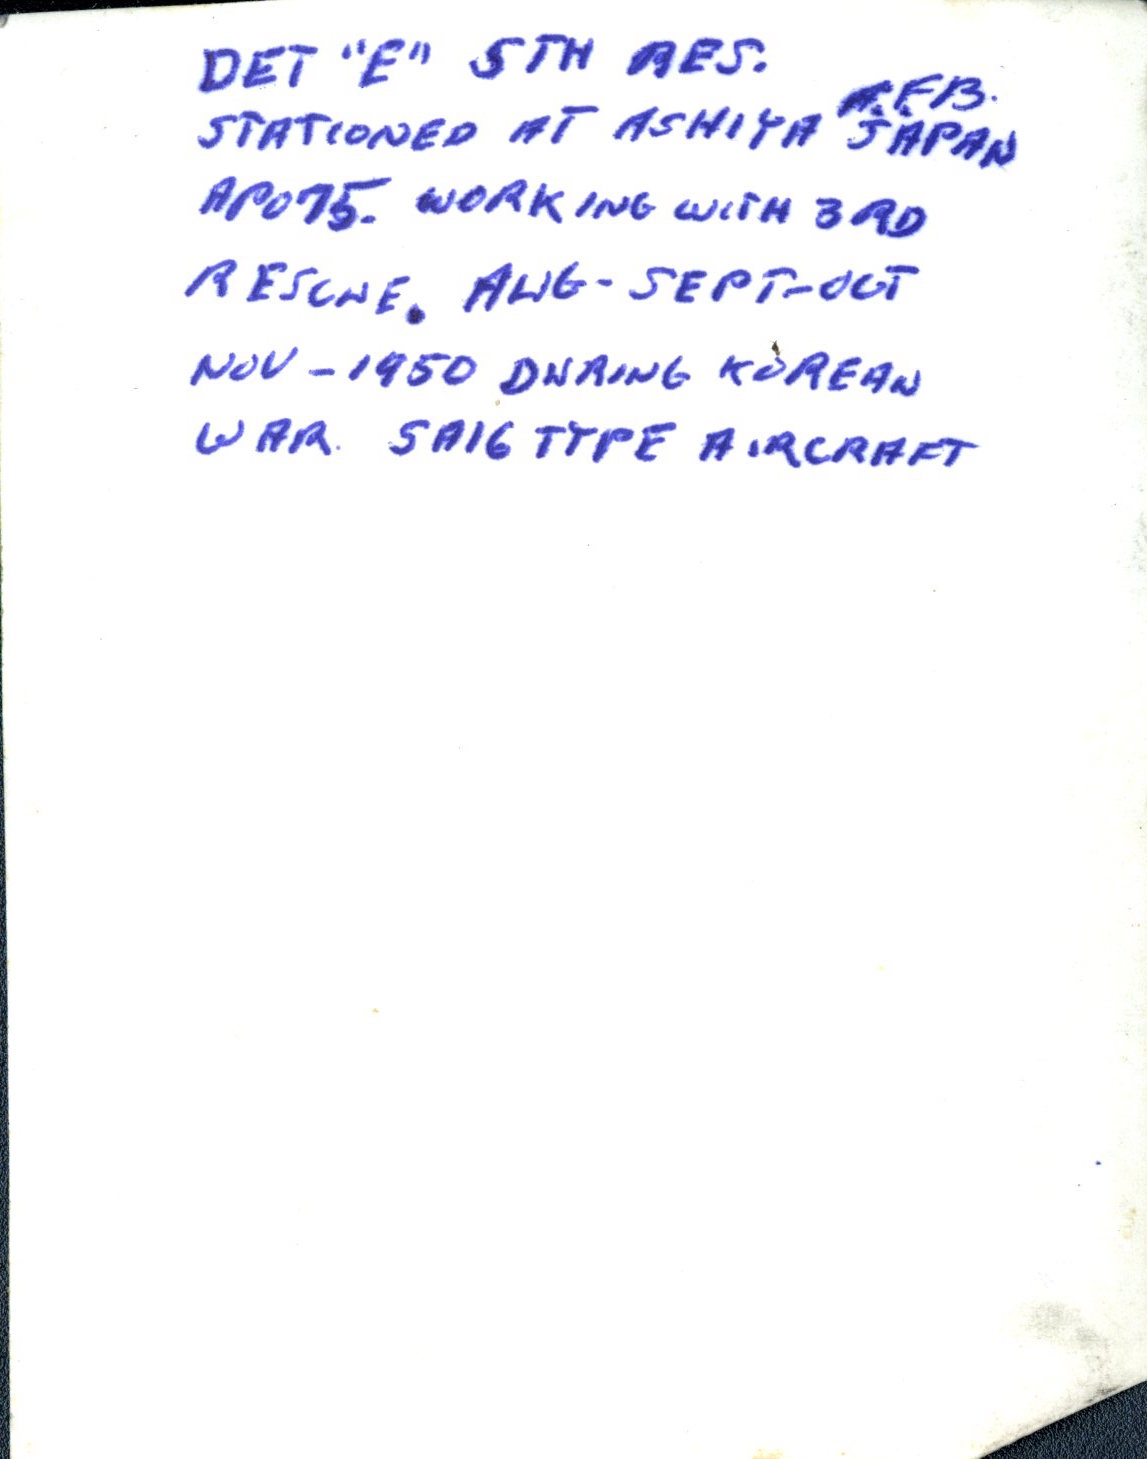 DET "E" 5TH RES.
A.F.B.
STATIONED AT ASHIYA JAPAN
APO75. WORKING WITH 3RD
RESCUE. AUG - SEPT - OCT
NOV - 1950 DURING KOREAN
WAR. SA16 TYPE AIRCRAFT